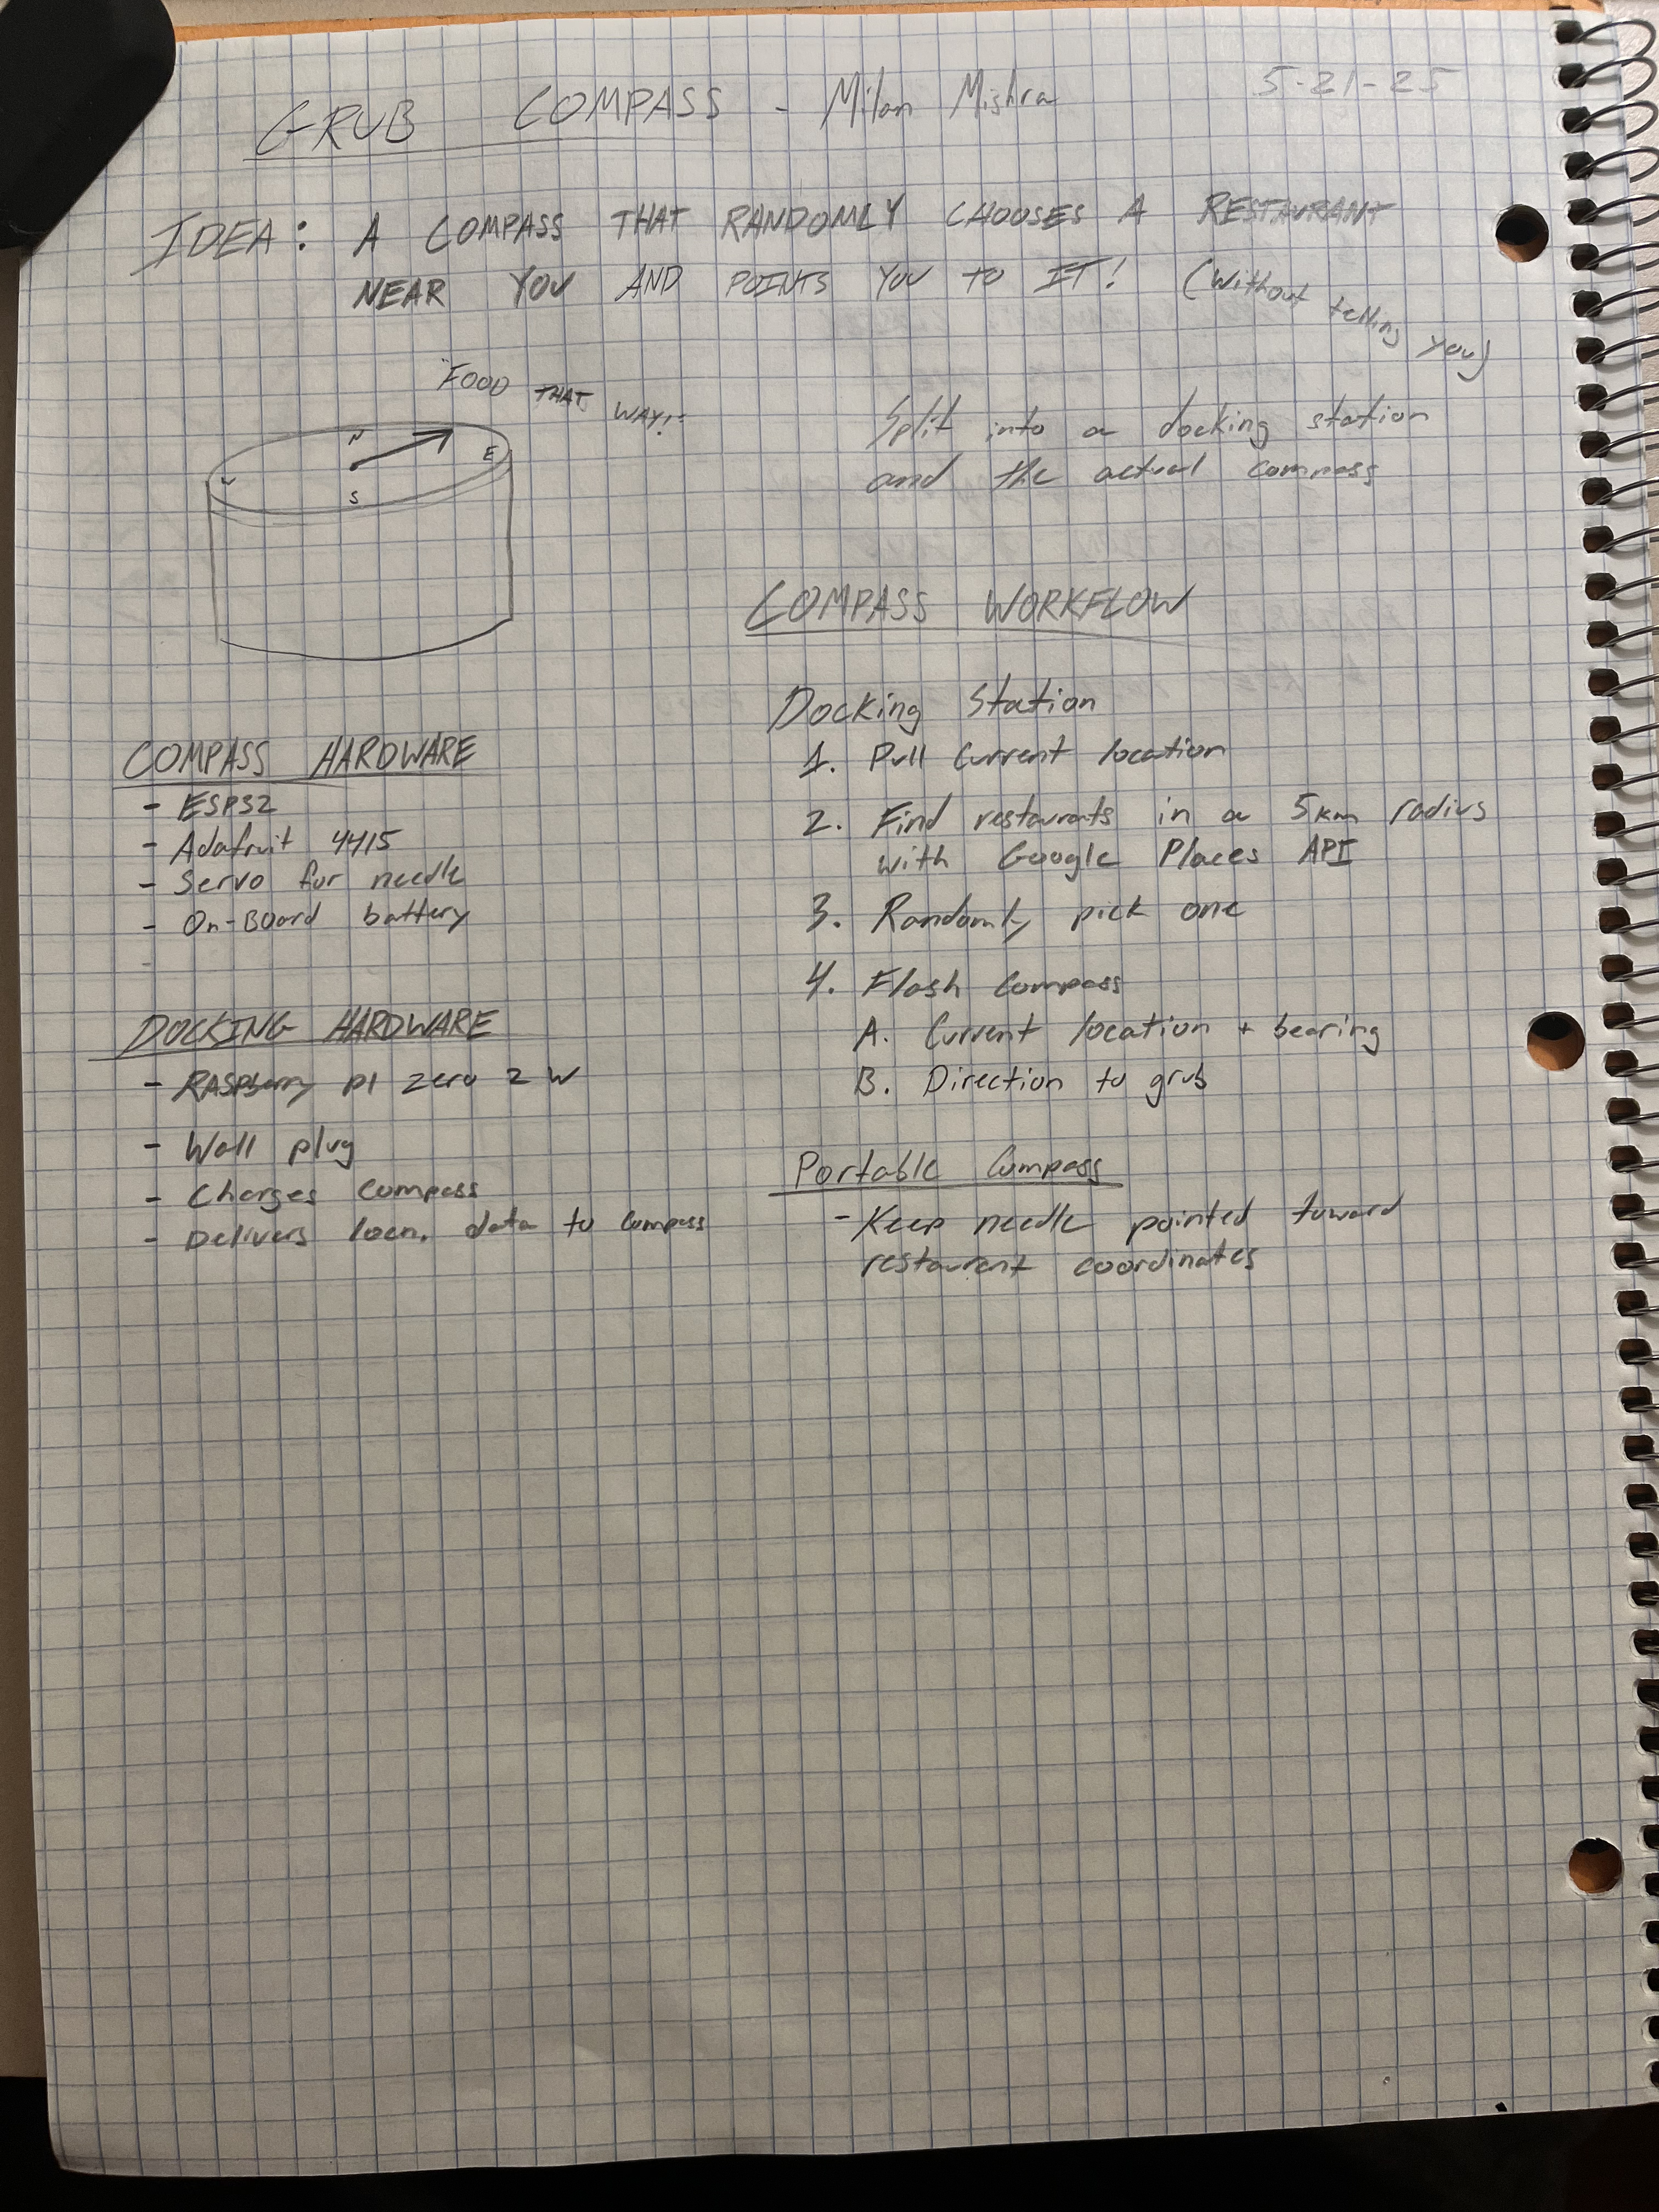 GRUB COMPASS - Milan Mishra
5-21-25
IDEA: A COMPASS THAT RANDOMLY CHOOSES A RESTAURANT
NEAR YOU AND POINTS YOU TO IT! (without telling you)
"FOOD THAT WAY!"
N
E
S
Split into a docking station
and the actual compass
COMPASS HARDWARE
- ESP32
- Adafruit 4415
- Servo for needle
- On-Board battery
DOCKING HARDWARE
- RASPberry pi zero 2 W
- Wall plug
- Charges compass
- Delivers locn. data to compass
COMPASS WORKFLOW
Docking Station
1. Pull Current location
2. Find restaurats in a 5km radius
with Google Places API
3. Randomly pick one
4. Flash Compass
A. Current location + bearing
B. Direction to grub
Portable Compass
- Keep needle pointed toward
restaurent coordinates